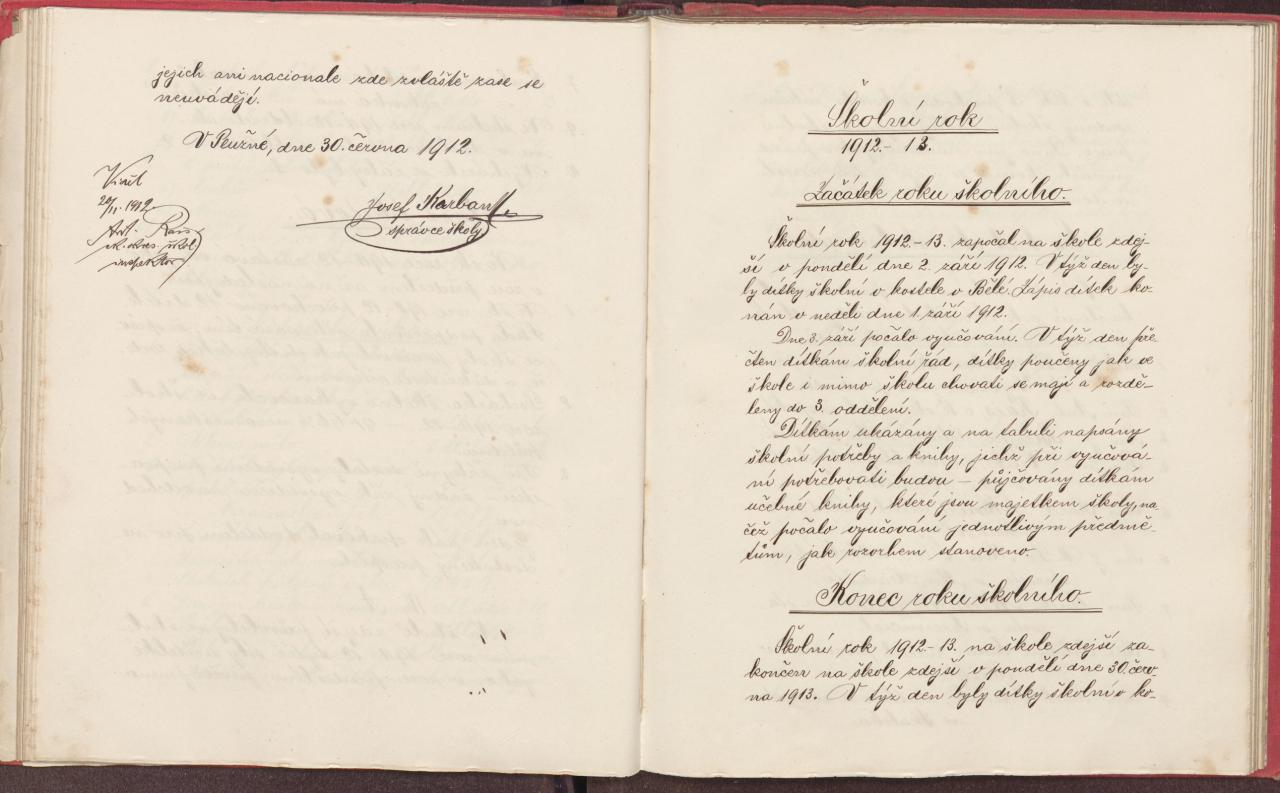 jejich ani nacionale zde zvláště zase se
neuvádějí.
V Peužné, dne 30. června 1912.
Viděl
20/11. 1912
Ant.
k. okres. škol.
inspektor
Josef Karban
správce školy
Školní rok
1912.- 13.
Začátek roku školního.
Školní rok 1912-13. započal na škole zdej-
ší v pondělí dne 2. září 1912. V týž den by-
ly dítky školní v kostele v Bělé. Zápis dítek ko-
nán v neděli dne 1. září 1912.
Dne 3. září počalo vyučování. V týž den pře-
čten dítkám školní řád, dítky poučeny jak ve
škole i mimo školu chovati se mají a rozdě-
leny do 3. oddělení.
Dítkám ukázány a na tabuli napsány
školní potřeby a knihy, jichž při vyučová-
ní potřebovati budou – půjčovány dítkám
učebné knihy, které jsou majetkem školy, na-
čež počalo vyučování jednotlivým předmě-
tům, jak rozvrhem stanoveno.
Konec roku školního.
Školní rok 1912-13. na škole zdejší za-
končen na škole zdejší v pondělí dne 30. červ-
na 1913. V týž den byly dítky školní v ko-